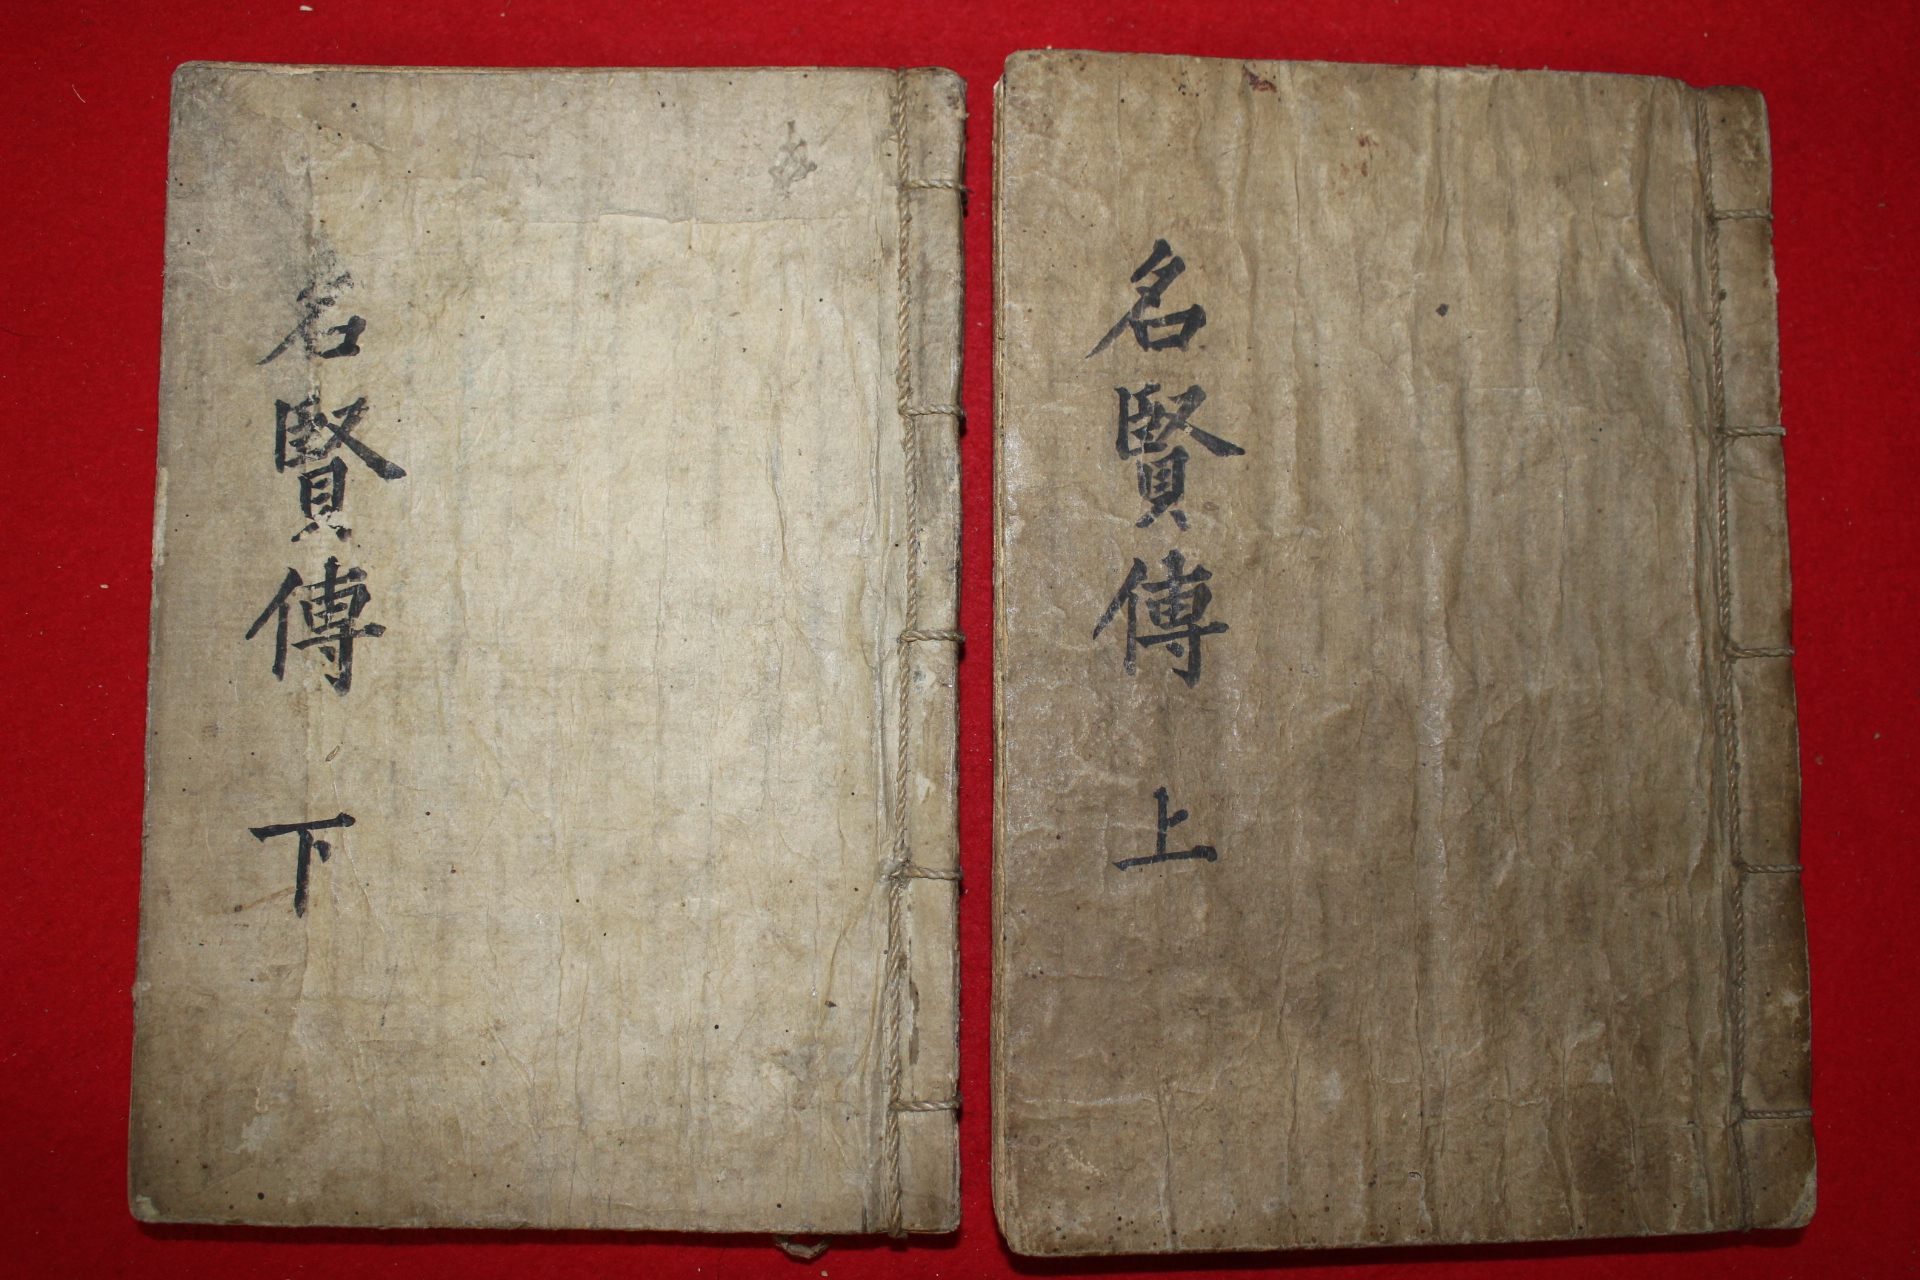 名賢傳 上
名賢傳 下